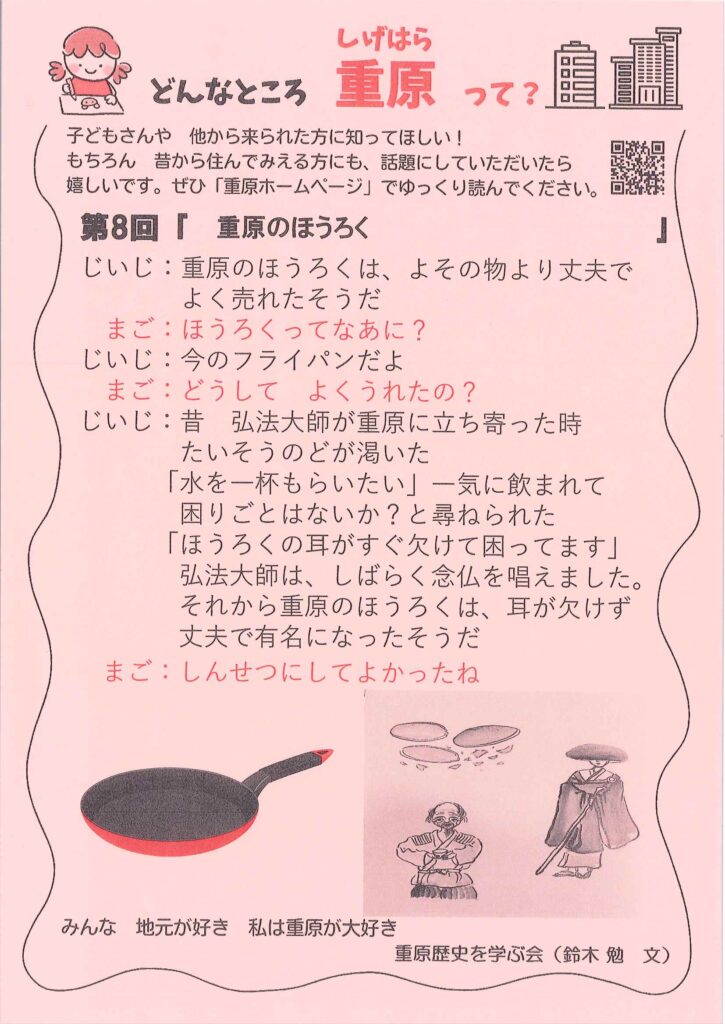 しげはら
どんなところ 重原 って？
子どもさんや　他から来られた方に知ってほしい！
もちろん　昔から住んでみえる方にも、話題にしていただいたら
嬉しいです。ぜひ「重原ホームページ」でゆっくり読んでください。
第8回『　重原のほうろく　』
じいじ：重原のほうろくは、よその物より丈夫で
よく売れたそうだ
まご：ほうろくってなあに？
じいじ：今のフライパンだよ
まご：どうして　よくうれたの？
じいじ：昔　弘法大師が重原に立ち寄った時
たいそうのどが渇いた
「水を一杯もらいたい」一気に飲まれて
困りごとはないか？と尋ねられた
「ほうろくの耳がすぐ欠けて困ってます」
弘法大師は、しばらく念仏を唱えました。
それから重原のほうろくは、耳が欠けず
丈夫で有名になったそうだ
まご：しんせつにしてよかったね
みんな　地元が好き　私は重原が大好き
重原歴史を学ぶ会（鈴木 勉　文）